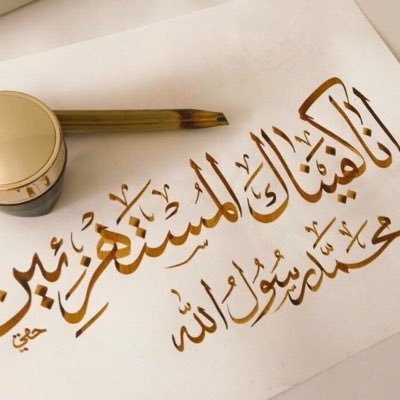 انا كفيناك المستهزئين
محمد رسول الله